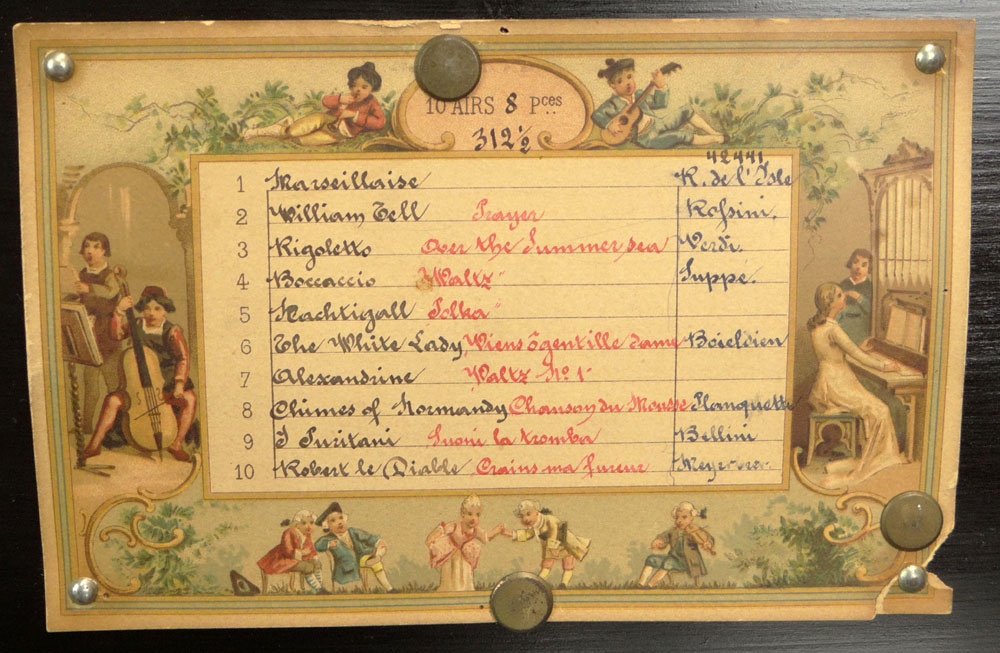 10 AIRS 8 Pces
312½
42441
1 Marseillaise R. de l'Isle
2 William Tell Prayer Rossini.
3 Rigoletto Over the Summer sea Verdi.
4 Boccaccio "Waltz" Suppé.
5 Nachtigall Polka"
6 The White Lady, Viens ô gentille dame Boieldieu
7 Alexandrine Waltz No. 1
8 Chimes of Normandy Chanson du Mousse Planquette
9 I Puritani Suoni la tromba Bellini
10 Robert le Diable Crains ma fureur